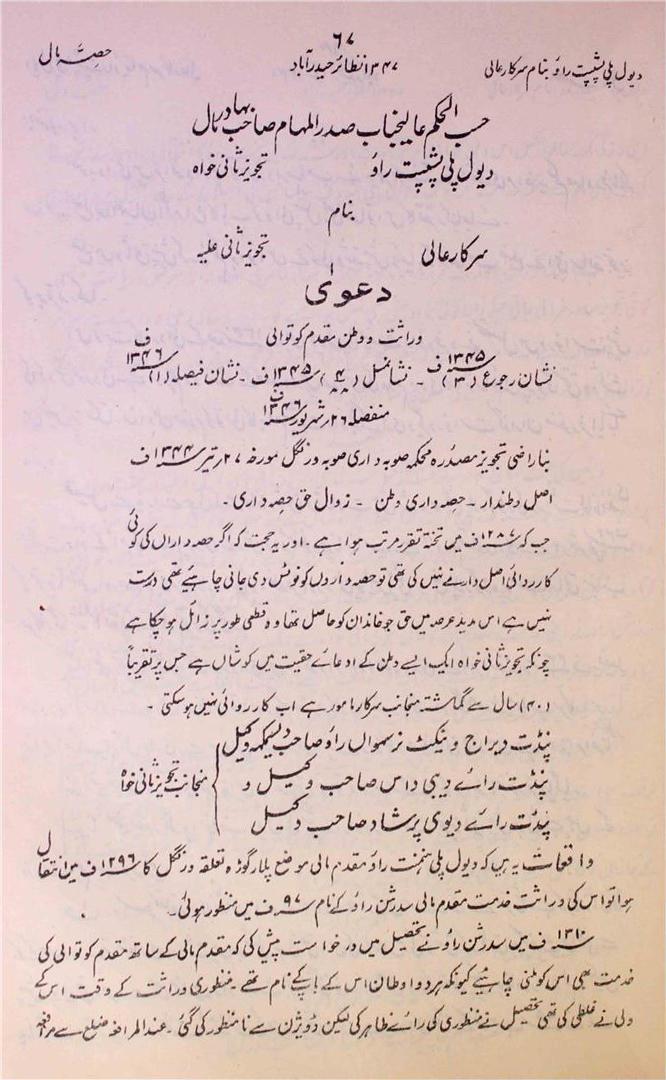 ۶۷
دیول پلی پشپت راؤ بنام سرکار عالی ۱۳۴۷ نظائر حیدرآباد حصۂ مال
حسب الحکم عالیجناب صدر المہام صاحب بہادر مال
دیول پلی پشپت راؤ تجویز ثانی خواہ
بنام
سرکار عالی تجویز ثانی علیہ
دعویٰ
وراثت و وطن مقدم کوتوالی
نشان رجوع (۳) ۱۳۴۵ف ۔ نشانمثل (۴/۸۸) ۱۳۴۵ف ۔ نشان فیصلہ (۱) ۱۳۴۶ف
منفصلہ ۲۶؍شہریور ۱۳۴۶ف
بناراضی تجویز مصدرہ محکمہ صوبہ داری صوبہ ورنگل مورخہ ۲۷؍تیر ۱۳۴۴ف
اصل وطندار ۔ حصہ داری وطن ۔ زوال حق حصہ داری ۔
جب کہ ۱۲۸۷ف میں تختہ تقرر مرتب ہوا ہے ۔ اور یہ حجت کہ اگر حصہ داراں کی کوئی
کارروائی اصل دار نے نہیں کی تھی تو حصہ داروں کو نوٹس دی جانی چاہئیے تھی درست
نہیں ہے اس مدید عرصہ میں حق جو خاندان کو حاصل تھا وہ قطعی طور پر زائل ہو چکا ہے
چونکہ تجویز ثانی خواہ ایک ایسے وطن کے ادعائے حقیت میں کوشاں ہے جس پر تقریباً
(۴۰) سال سے گماشتہ منجانب سرکار مامور ہے اب کارروائی نہیں ہو سکتی ۔
پنڈت دیراج ونیکٹ نرسہواں راؤ صاحب دیسمکہ وکیل
پنڈت رائے دیبی داس صاحب وکیل و منجانب تجویز ثانی خواہ
پنڈت رائے دیوی پرشاد صاحب وکیل
واقعات یہ ہیں کہ دیول پلی ہنمنت راؤ مقدم مالی موضع پلارگوڑہ تعلقہ ورنگل کا ۱۲۹۶ف میں انتقال
ہوا تو اس کی وراثت خدمت مقدم مالی سدرشن راؤ کے نام ۹۷ف میں منظور ہوئی ۔
۱۳۱۰ف میں سدرشن راؤ نے تحصیل میں درخواست پیش کی کہ مقدم مالی کے ساتھ مقدم کوتوالی کی
خدمت بھی اس کو ملنی چاہئیے کیونکہ ہر دو اوطان اس کے باپ کے نام تھے ۔ منظوری وراثت کے وقت اس کے
ولی نے غلطی کی تھی تحصیل نے منظوری کی رائے ظاہر کی لیکن ڈویژن سے نامنظور کی گئی ۔ عند المرافعہ ضلع سے مرافعہ